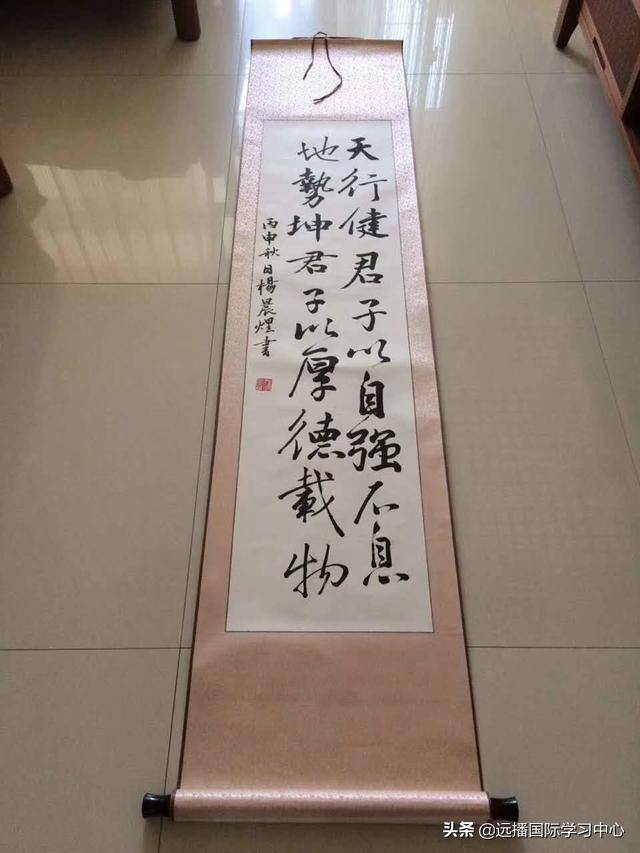 天行健君子以自强不息
地勢坤君子以厚德載物
丙申秋日楊晨煜書
头条 @远播国际学习中心